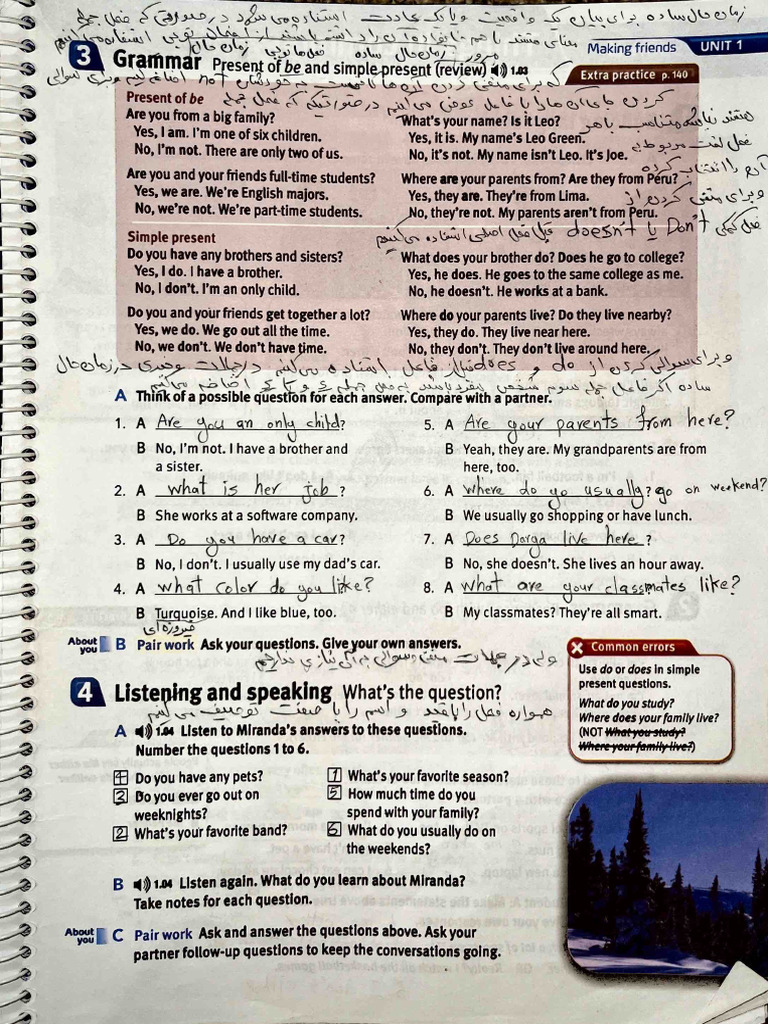 زمان حال ساده برای بیان یک واقعیت و یا یک عادت استفاده می شود در صورتی که فعل جمله
Making friends UNIT 1
3 Grammar Present of be and simple present (review) 1.03
Extra practice p. 140
Present of be
Are you from a big family?
Yes, I am. I'm one of six children.
No, I'm not. There are only two of us.
What's your name? Is it Leo?
Yes, it is. My name's Leo Green.
No, it's not. My name isn't Leo. It's Joe.
Are you and your friends full-time students?
Yes, we are. We're English majors.
No, we're not. We're part-time students.
Where are your parents from? Are they from Peru?
Yes, they are. They're from Lima.
No, they're not. My parents aren't from Peru.
و برای منفی کردن از
فعل کمکی Don't یا doesn't قبل فعل اصلی استفاده می کنیم
Simple present
Do you have any brothers and sisters?
Yes, I do. I have a brother.
No, I don't. I'm an only child.
What does your brother do? Does he go to college?
Yes, he does. He goes to the same college as me.
No, he doesn't. He works at a bank.
Do you and your friends get together a lot?
Yes, we do. We go out all the time.
No, we don't. We don't have time.
Where do your parents live? Do they live nearby?
Yes, they do. They live near here.
No, they don't. They don't live around here.
و برای سوالی کردن از do و does قبل از فاعل استفاده می کنیم در جملات خبری در زمان حال
ساده اگر فاعل جمله سوم شخص مفرد باشد به فعل جمله s و یا es اضافه می کنیم
A Think of a possible question for each answer. Compare with a partner.
1. A Are you an only child?
B No, I'm not. I have a brother and
a sister.
2. A what is her job?
B She works at a software company.
3. A Do you have a car?
B No, I don't. I usually use my dad's car.
4. A what color do you like?
B Turquoise. And I like blue, too.
فیروزه ای
5. A Are your parents from here?
B Yeah, they are. My grandparents are from
here, too.
6. A where do yo usually? go on weekend?
B We usually go shopping or have lunch.
7. A Does Darga live here?
B No, she doesn't. She lives an hour away.
8. A what are your classmates like?
B My classmates? They're all smart.
About you B Pair work Ask your questions. Give your own answers.
Common errors
Use do or does in simple
present questions.
What do you study?
Where does your family live?
(NOT What you study?
Where your family live?)
4 Listening and speaking What's the question?
همواره فعل را با قید و اسم را با صفت توصیف می کنیم
A 1.04 Listen to Miranda's answers to these questions.
Number the questions 1 to 6.
4 Do you have any pets?
3 Do you ever go out on
weeknights?
2 What's your favorite band?
1 What's your favorite season?
5 How much time do you
spend with your family?
6 What do you usually do on
the weekends?
B 1.04 Listen again. What do you learn about Miranda?
Take notes for each question.
About you C Pair work Ask and answer the questions above. Ask your
partner follow-up questions to keep the conversations going.